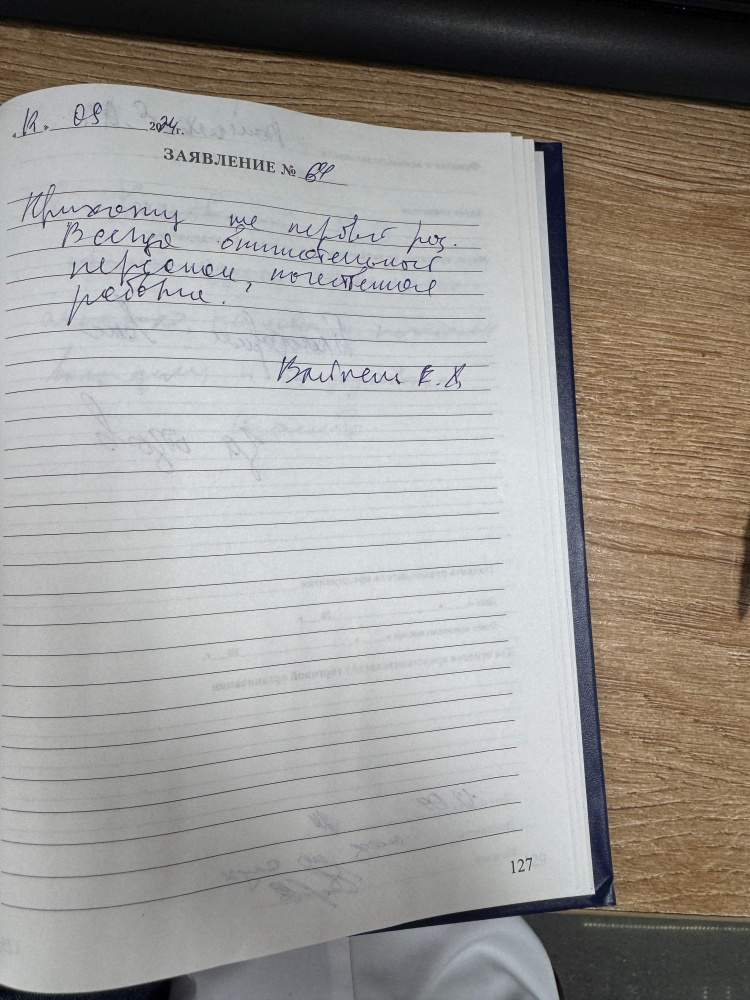 "12" 09 2024г.
ЗАЯВЛЕНИЕ № 64
Прихожу не первый раз.
Всегда внимательный
персонал, качественная
работа.
К. Д.
127